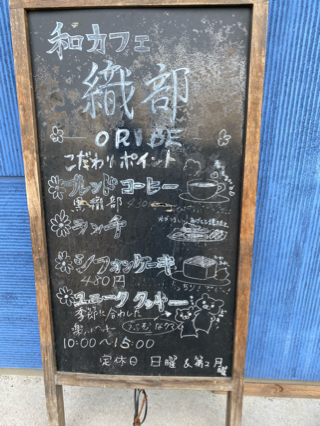 和カフェ
織部
ORIBE
こだわりポイント
ブレンドコーヒー
黒織部 450
ランチ
シフォンケーキ
480円
ユニーククッキー
季節に合わした
10:00〜15:00
定休日 日曜 & 第2月曜